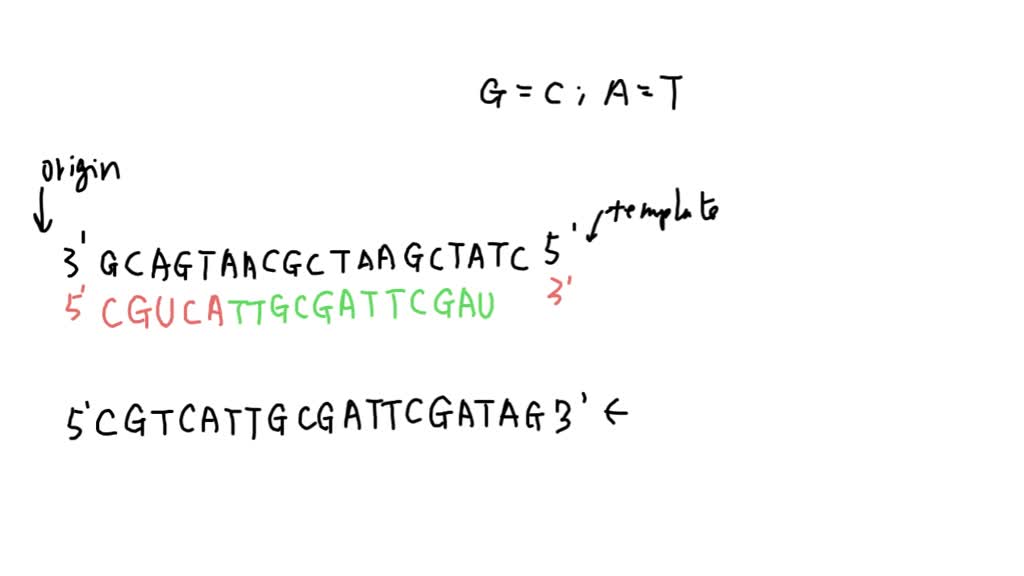 G = C ; A = T
origin
template
3' GCAGTAACGCTAAGCTATC 5'
5' CGUCATTGCGATTCGAU 3'
5'CGTCATTGCGATTCGATAG3' ←